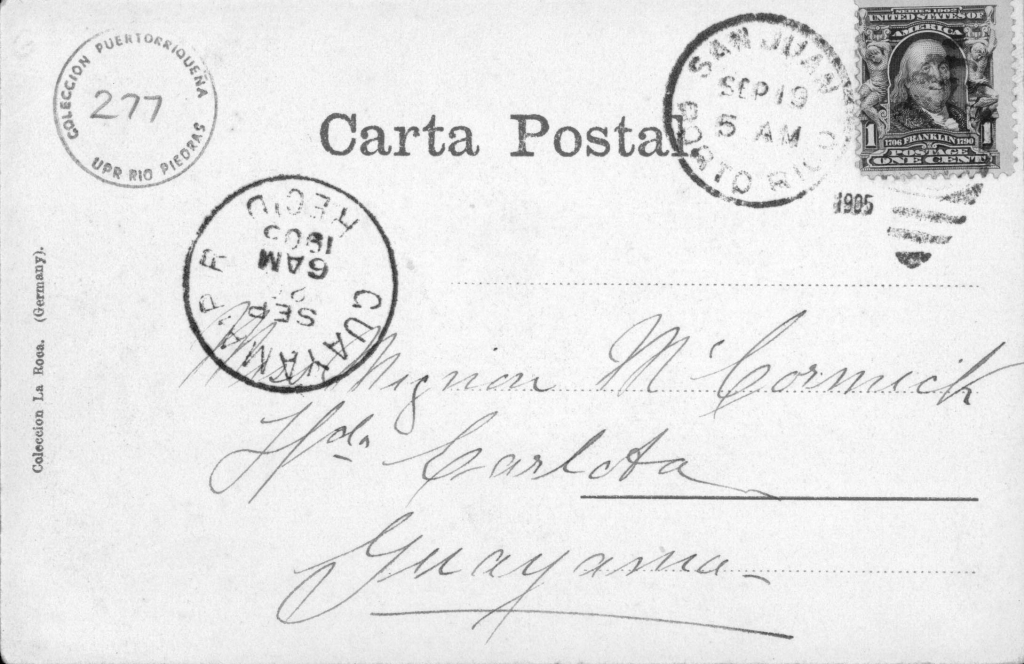 COLECCION PUERTORRIQUEÑA
277
UPR RIO PIEDRAS
Carta Postal.
SAN JUAN
SEP 19
5 AM
PORTO RICO
1905
SERIES 1902
UNITED STATES OF
AMERICA
1 1
1706 FRANKLIN 1790
POSTAGE
ONE CENT
GUAYAMA P R
SEP
6 AM
1905
REC'D
Coleccion La Roca. (Germany).
Mignon McCormick
Hda Carlota
Guayama